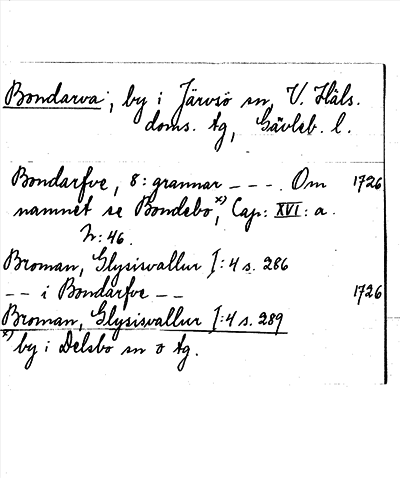 Bondarva, by i Järvsö sn, V. Häls.
doms. tg, Gävleb. l.
Bondarfve, 8: grannar --- . Om 1726
namnet se Bondebo x), Cap: XVI: a.
h: 46.
Broman, Glysisvallur I: 4 s. 286
-- i Bondarfve -- 1726
Broman, Glysisvallur I: 4 s. 289
x) by i Delsbo sn o tg.